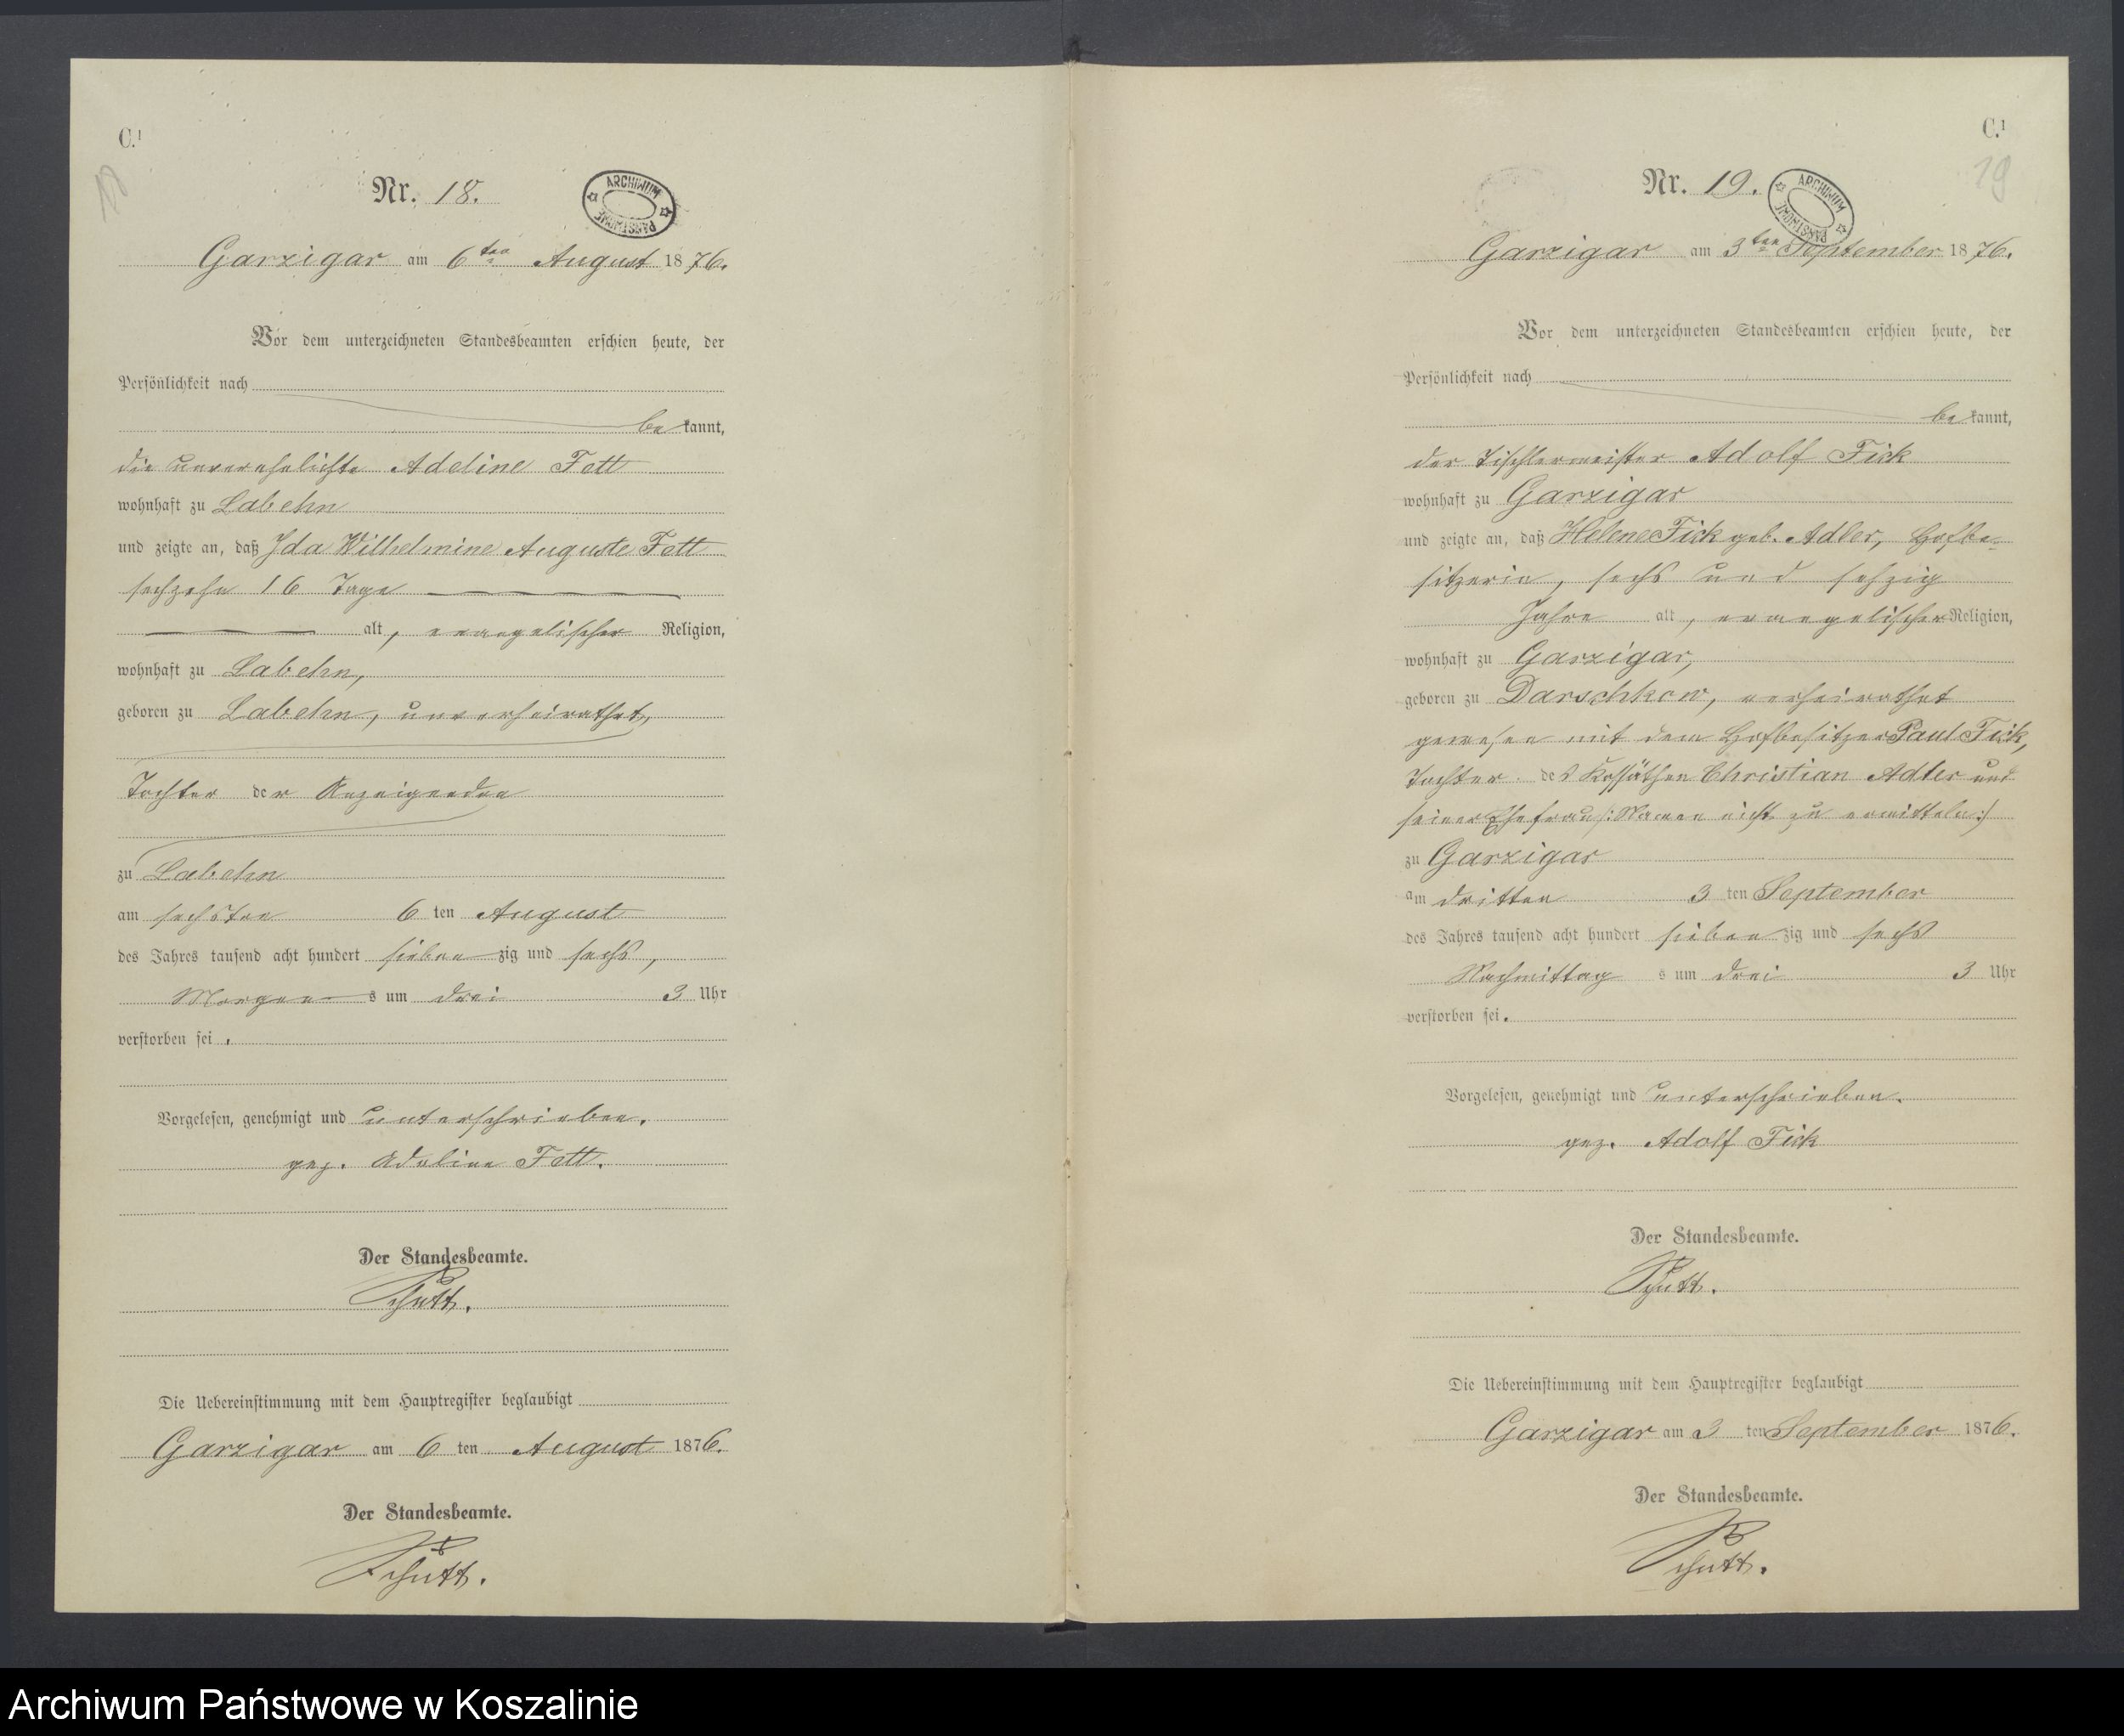 C.¹
18
Nr. 18.
ARCHIWUM PAŃSTWOWE
Garzigar am 6ten August 1876.
Vor dem unterzeichneten Standesbeamten erschien heute, der
Persönlichkeit nach
bekannt,
die unverehelichte Adeline Fett
wohnhaft zu Labehn
und zeigte an, daß Ida Wilhelmine Auguste Fett
sechzehn 16 Tage
alt, evangelischer Religion,
wohnhaft zu Labehn,
geboren zu Labehn, unverheirathet,
Tochter der Anzeigenden
zu Labehn
am sechsten 6 ten August
des Jahres tausend acht hundert siebenzig und sechs,
Morgens um drei 3 Uhr
verstorben sei.
Vorgelesen, genehmigt und unterschrieben.
gez. Adeline Fett.
Der Standesbeamte.
Schutt.
Die Uebereinstimmung mit dem Hauptregister beglaubigt
Garzigar am 6 ten August 1876.
Der Standesbeamte.
Schutt.
C.¹
19
Nr. 19.
ARCHIWUM PAŃSTWOWE
Garzigar am 3ten September 1876.
Vor dem unterzeichneten Standesbeamten erschien heute, der
Persönlichkeit nach
bekannt,
der Tischlermeister Adolf Fick
wohnhaft zu Garzigar
und zeigte an, daß Helene Fick geb. Adler, Hofbe-
sitzerin, sechs und sechzig
Jahre alt, evangelischer Religion,
wohnhaft zu Garzigar,
geboren zu Darschkow, verheirathet
gewesen mit dem Hofbesitzer Paul Fick,
Tochter des Kossäthen Christian Adler und
seiner Ehefrau /: Namen nicht zu ermitteln :/
zu Garzigar
am dritten 3 ten September
des Jahres tausend acht hundert siebenzig und sechs
Nachmittags um drei 3 Uhr
verstorben sei.
Vorgelesen, genehmigt und unterschrieben.
gez. Adolf Fick
Der Standesbeamte.
Schutt.
Die Uebereinstimmung mit dem Hauptregister beglaubigt
Garzigar am 3 ten September 1876.
Der Standesbeamte.
Schutt.
Archiwum Państwowe w Koszalinie